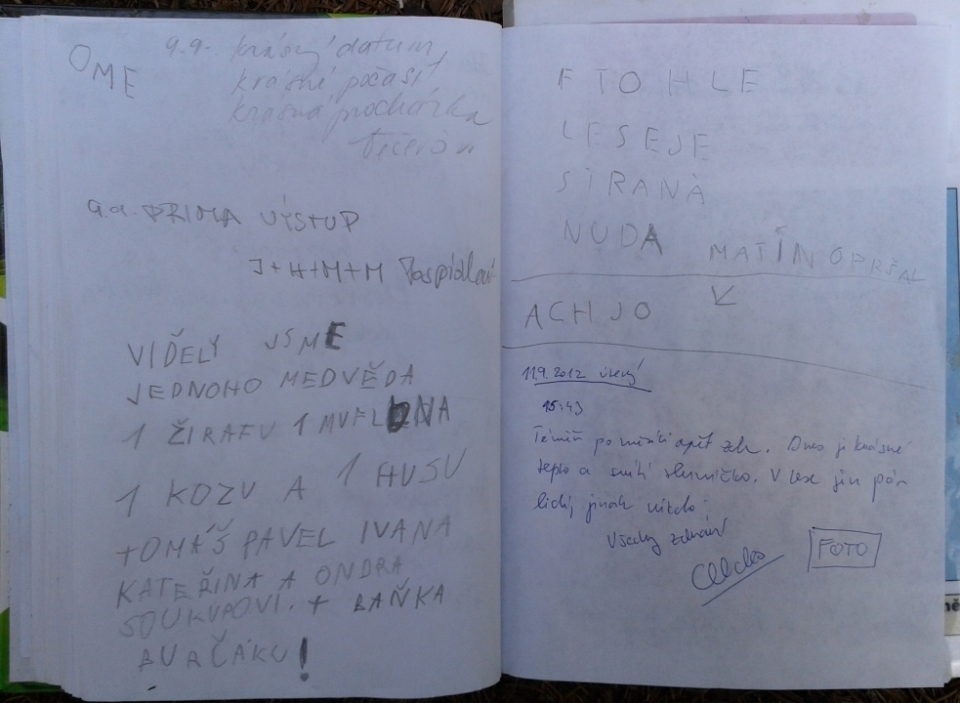 OME
9.9. krásný datum,
krásné počasí
krásná procházka
9.9. PRIMA VÝSTUP
J+H+M+M Pospíšilovi
VIĎELY JSME
JEDNOHO MEDVĚDA
1 ŽIRAFU 1 MUFLONA
1 KOZU A 1 HUSU
TOMÁŠ PAVEL IVANA
KATEŘINA A ONDRA
SOUKUPOVI. + BAŇKA
BURČÁKU!
F TOHLE
LESEJE
SIRANÁ
NUDA MATÍN OPRŠAL
ACH JO
11.9.2012 úterý
15:43
Téměř po měsíci opět zde. Dnes je krásné
teplo a svítí sluníčko. V lese jen pár
lidí, jinak nikdo.
Všechny zdraví
FOTO